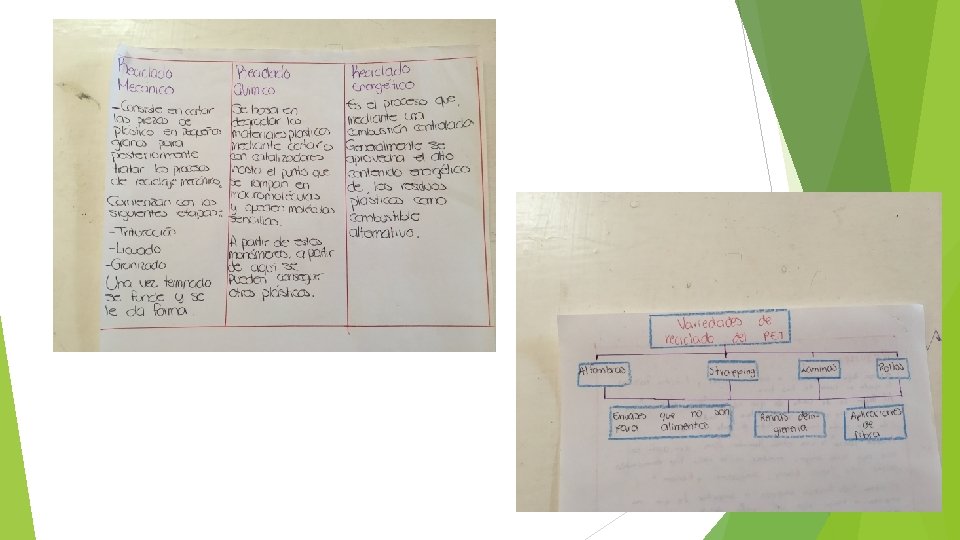 Reciclado
Mecánico
- Consiste en cortar
las piezas de
plástico en pequeños
granos para
posteriormente
tratar los procesos
de reciclaje mecánico.
Comienzan con las
siguientes etapas:
- Trituración
- Licuado
- Granizado
Una vez terminado
se funde y se
le da forma.
Reciclado
Químico
Se basa en
degradar los
materiales plásticos
mediante
con catalizadores
hasta el punto que
se rompan en
macromoléculas
y queden moléculas
sencillas.
A partir de estos
monómeros, a partir
de aquí se
pueden conseguir
otros plásticos.
Reciclado
energético
Es el proceso que,
mediante una
combustión controlada
Generalmente se
aprovecha el alto
contenido energético
de los residuos
plásticos como
combustible
alternativo.
Variedades de
reciclado del PET
Alfombras
Strapping
Laminas
Rollos
Envases que no son
para alimentos
Resinas de in-
gieneria
Aplicaciones
de
fibra